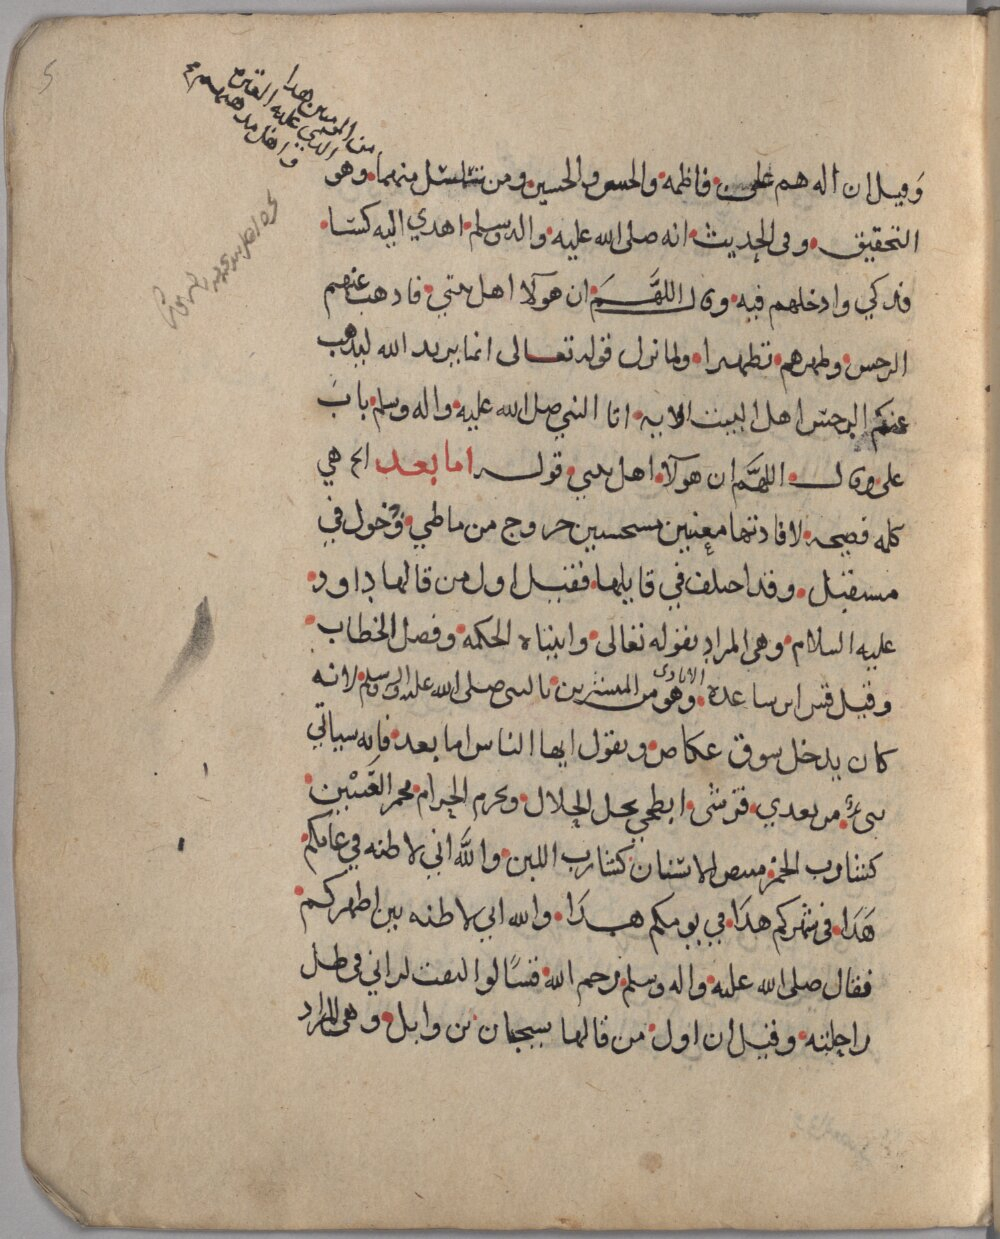 من المؤمنين هذا
الذي عليه
وقيل ان اله هم علي وفاطمه والحسن والحسين ومن تناسل منهما وهو
التحقيق وفى الحديث انه صلى الله عليه واله وسلم اهدي اليه كسا
فدكي وادخلهم فيه وقال اللهَّمَ ان هولآ اهل بيتي فاذهب عنهم
الرجس وطهرهم تطهيرا ولما نزل قوله تعالى انما يريد الله ليذهب
عنكم الرجس اهل البيت الايه اتا النبي صلى الله عليه واله وسلم باب
علي وقال اللهَّم ان هولآ اهل بيتي قوله اما بعد الخ هي
كلمه فصيحه لافادتها معنيين مستحسنين خروج من ماضي ودخول في
مستقبل وقد اختلف في قايلها فقيل اول من قالها داود
عليه السلام وهي المراد بقوله تعالى واتيناه الحكمه وفصل الخطاب
وقيل قس ابن ساعدة الايادى وهو من المبشرين بالنبى صلى الله عليه واله وسلم لانه
كان يدخل سوق عكاص ويقول ايها الناس اما بعد فانه سياتي
نبي من بعدي قرشى ابطحي يحل الحلال ويحرم الحرام محمر العَيْنين
كشارب الخمر مبيض الاسنان كشارب اللبن والله اني لاظنه في عامكم
هَذَا فى شهركم هذَا في يومكم هذَا والله اني لاظنه بين اظهركم
فقال صلى الله عليه واله وسلم يرحم الله قسًا لو التفت لراني فى ظل
راحلته وقيل ان اول من قالها سحبان بن وايل وهي المراد